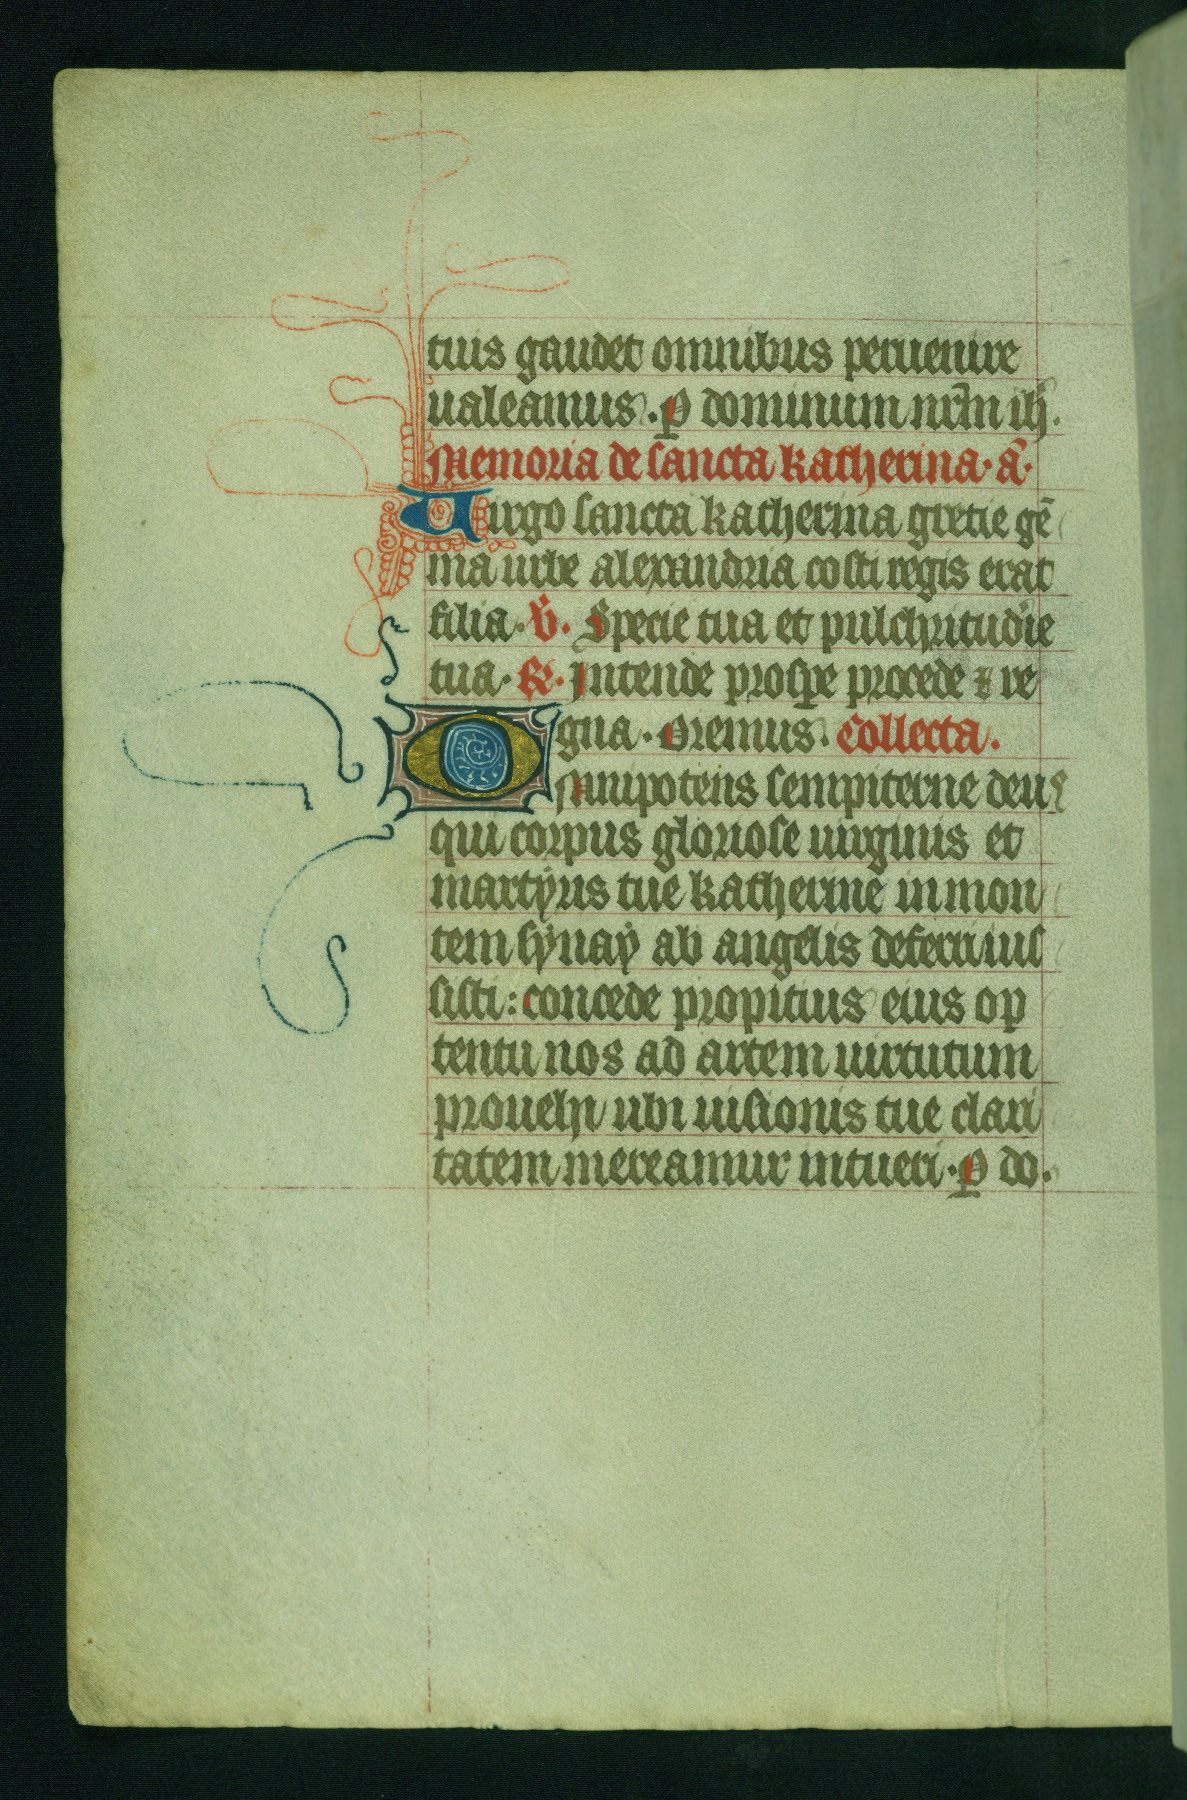 tuis gaudet omnibus peruenire
ualeamus. ꝑ dominum nr̄m ih̄.
Memoria de sancta katherina. a͞.
Uirgo sancta katherina gretie gē
ma urbe alexandria costi regis erat
filia. ℣. Specie tua et pulchritud'ie
tua. ℟. Intende prospe procede ⁊ re
gna. Oremus. Collecta.
Omnipotens sempiterne deus
qui corpus gloriose uirginis et
martyris tue katherine in mon
tem synay ab angelis deferri ius
sisti: concede propitius eius op
tentu nos ad artem uirtutum
prouehi ubi uisionis tue clari
tatem mereamur intueri. ꝑ do.